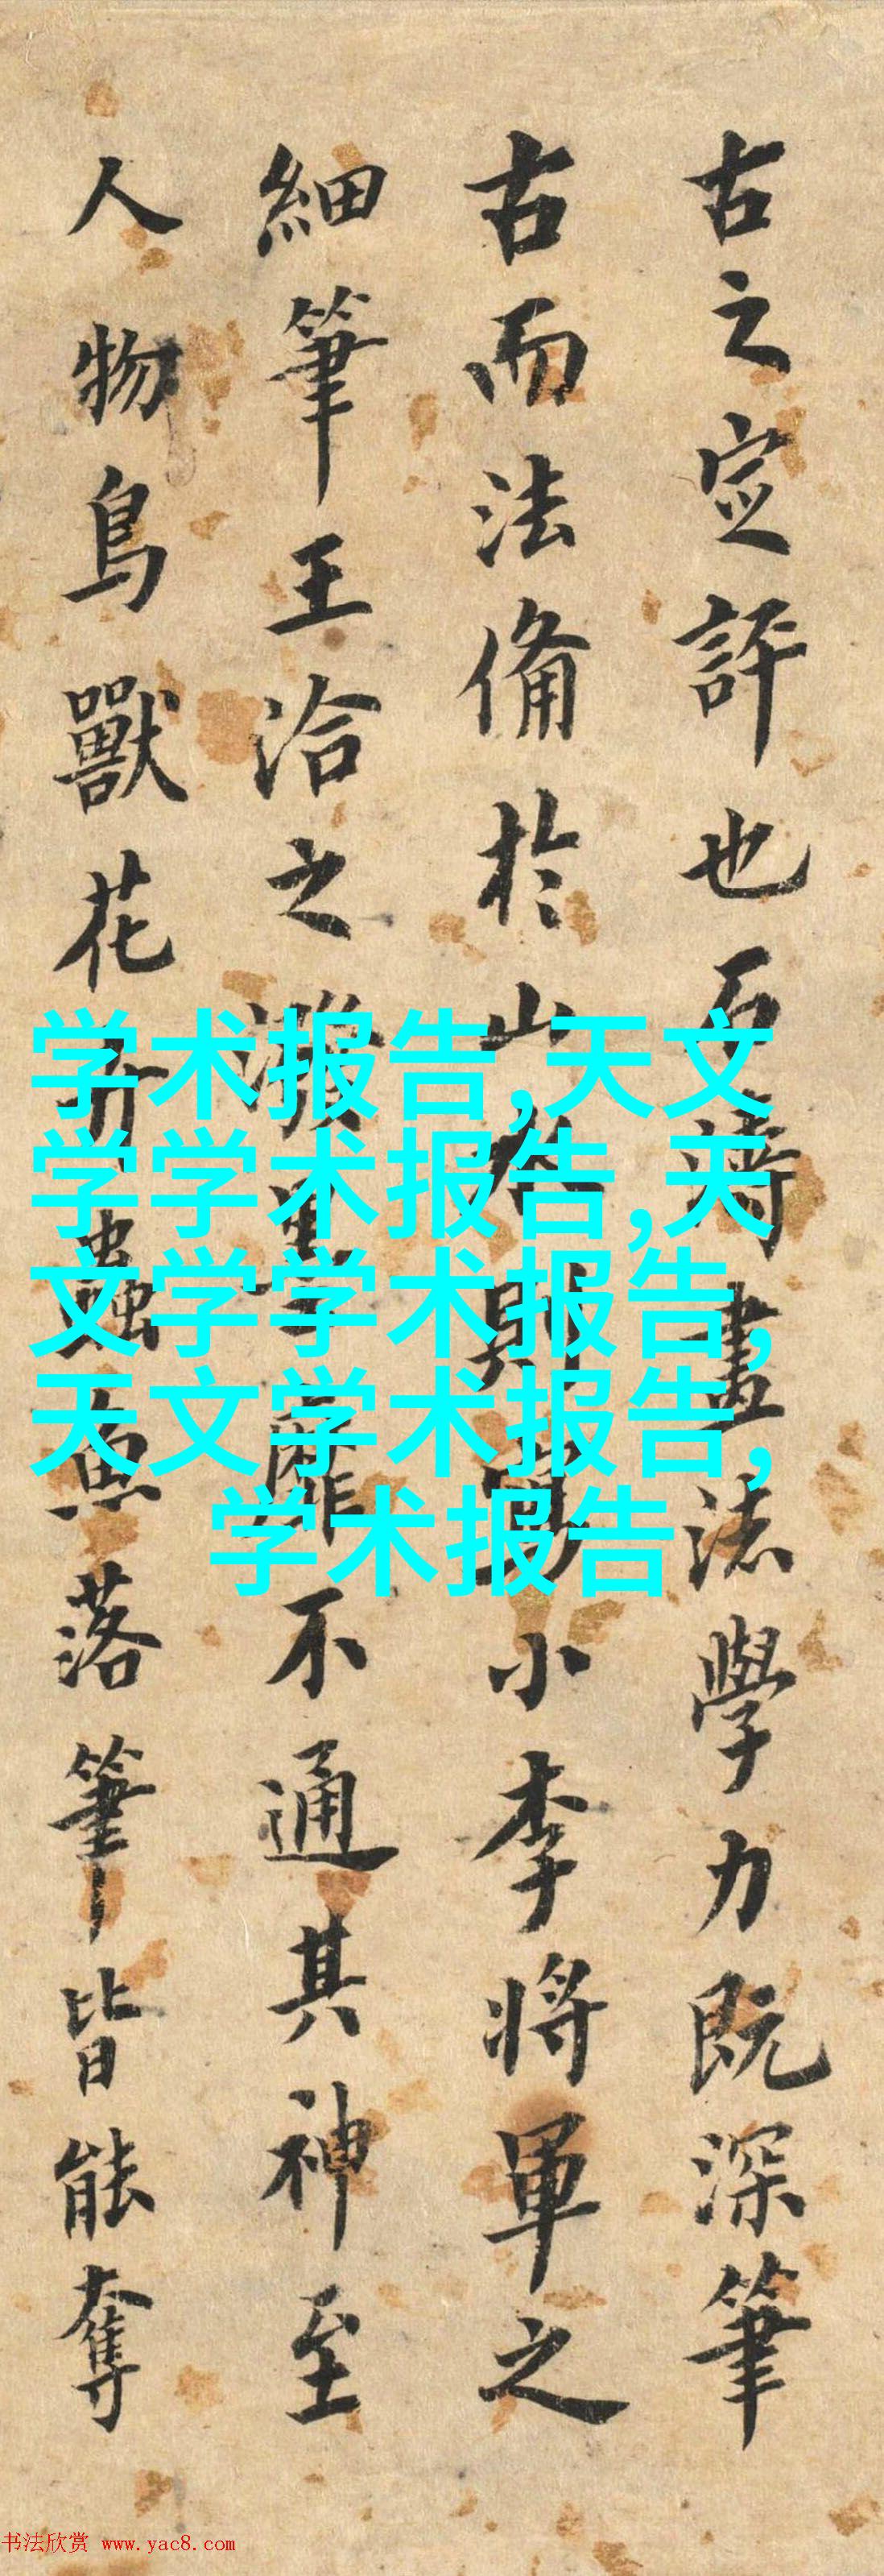 古之定評也石濤畫法學力既深筆
古而法備於山水則小李將軍之
細筆王洽之潑墨靡不通其神至
人物鳥獸花卉蟲魚落筆皆能奪
学术报告,天文
学学术报告,天
文学学术报告,
天文学术报告,
学术报告
书法欣赏 www.yac8.com